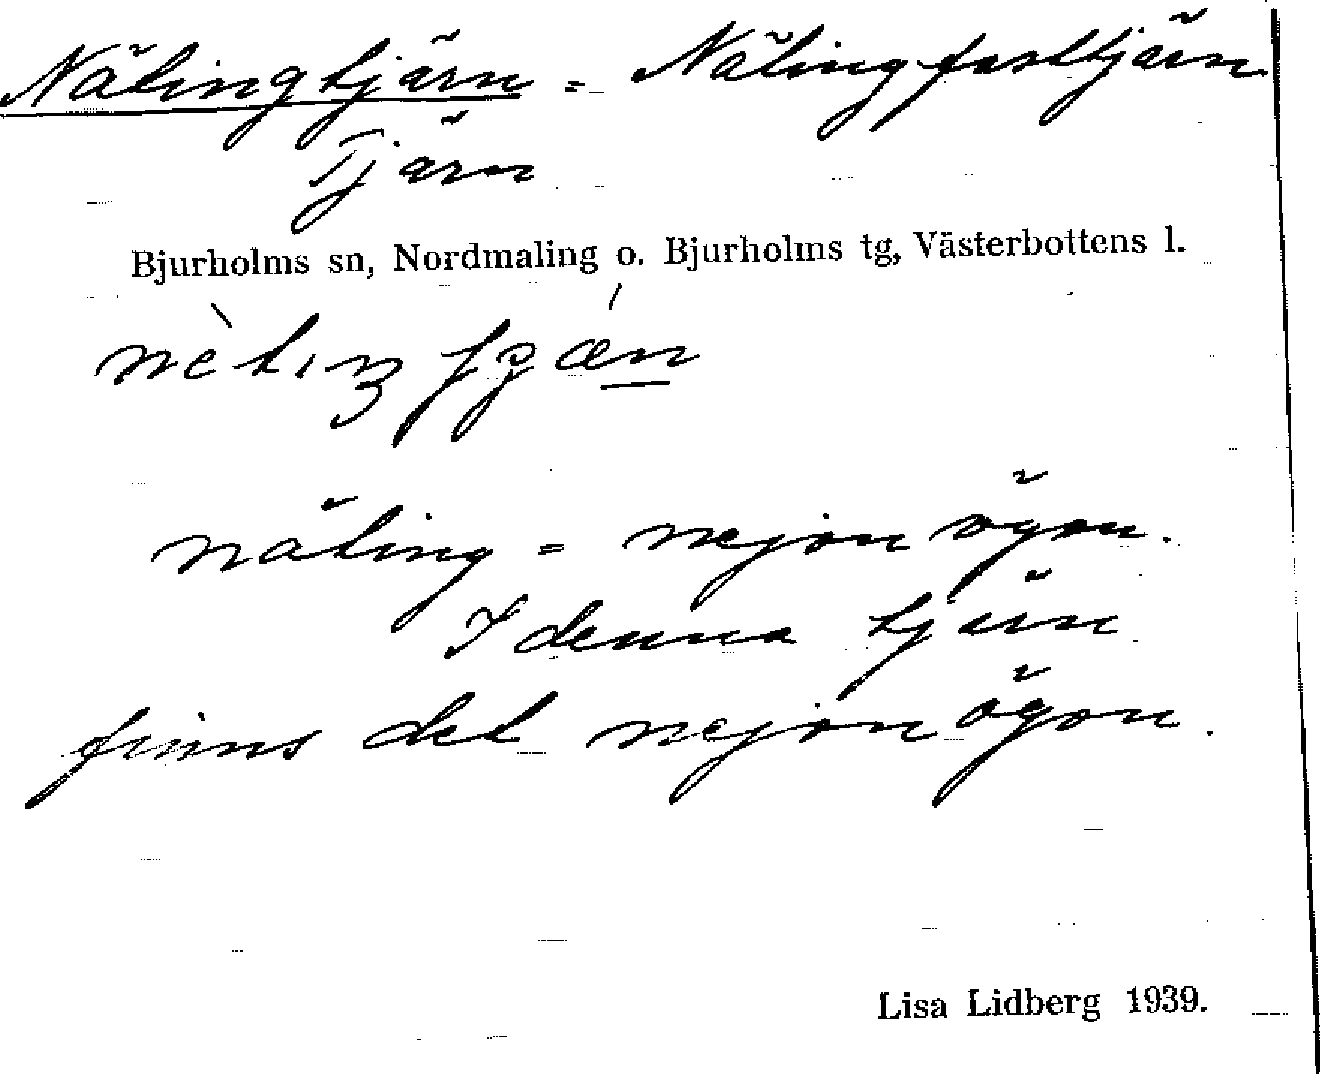 Nätingtjärn = Nätingfasttjärn
Tjärn
Bjurholms sn, Nordmaling o. Bjurholms tg, Västerbottens l.
näting = nejonögon.
I denna tjärn
finns det nejonögon.
Lisa Lidberg 1939.